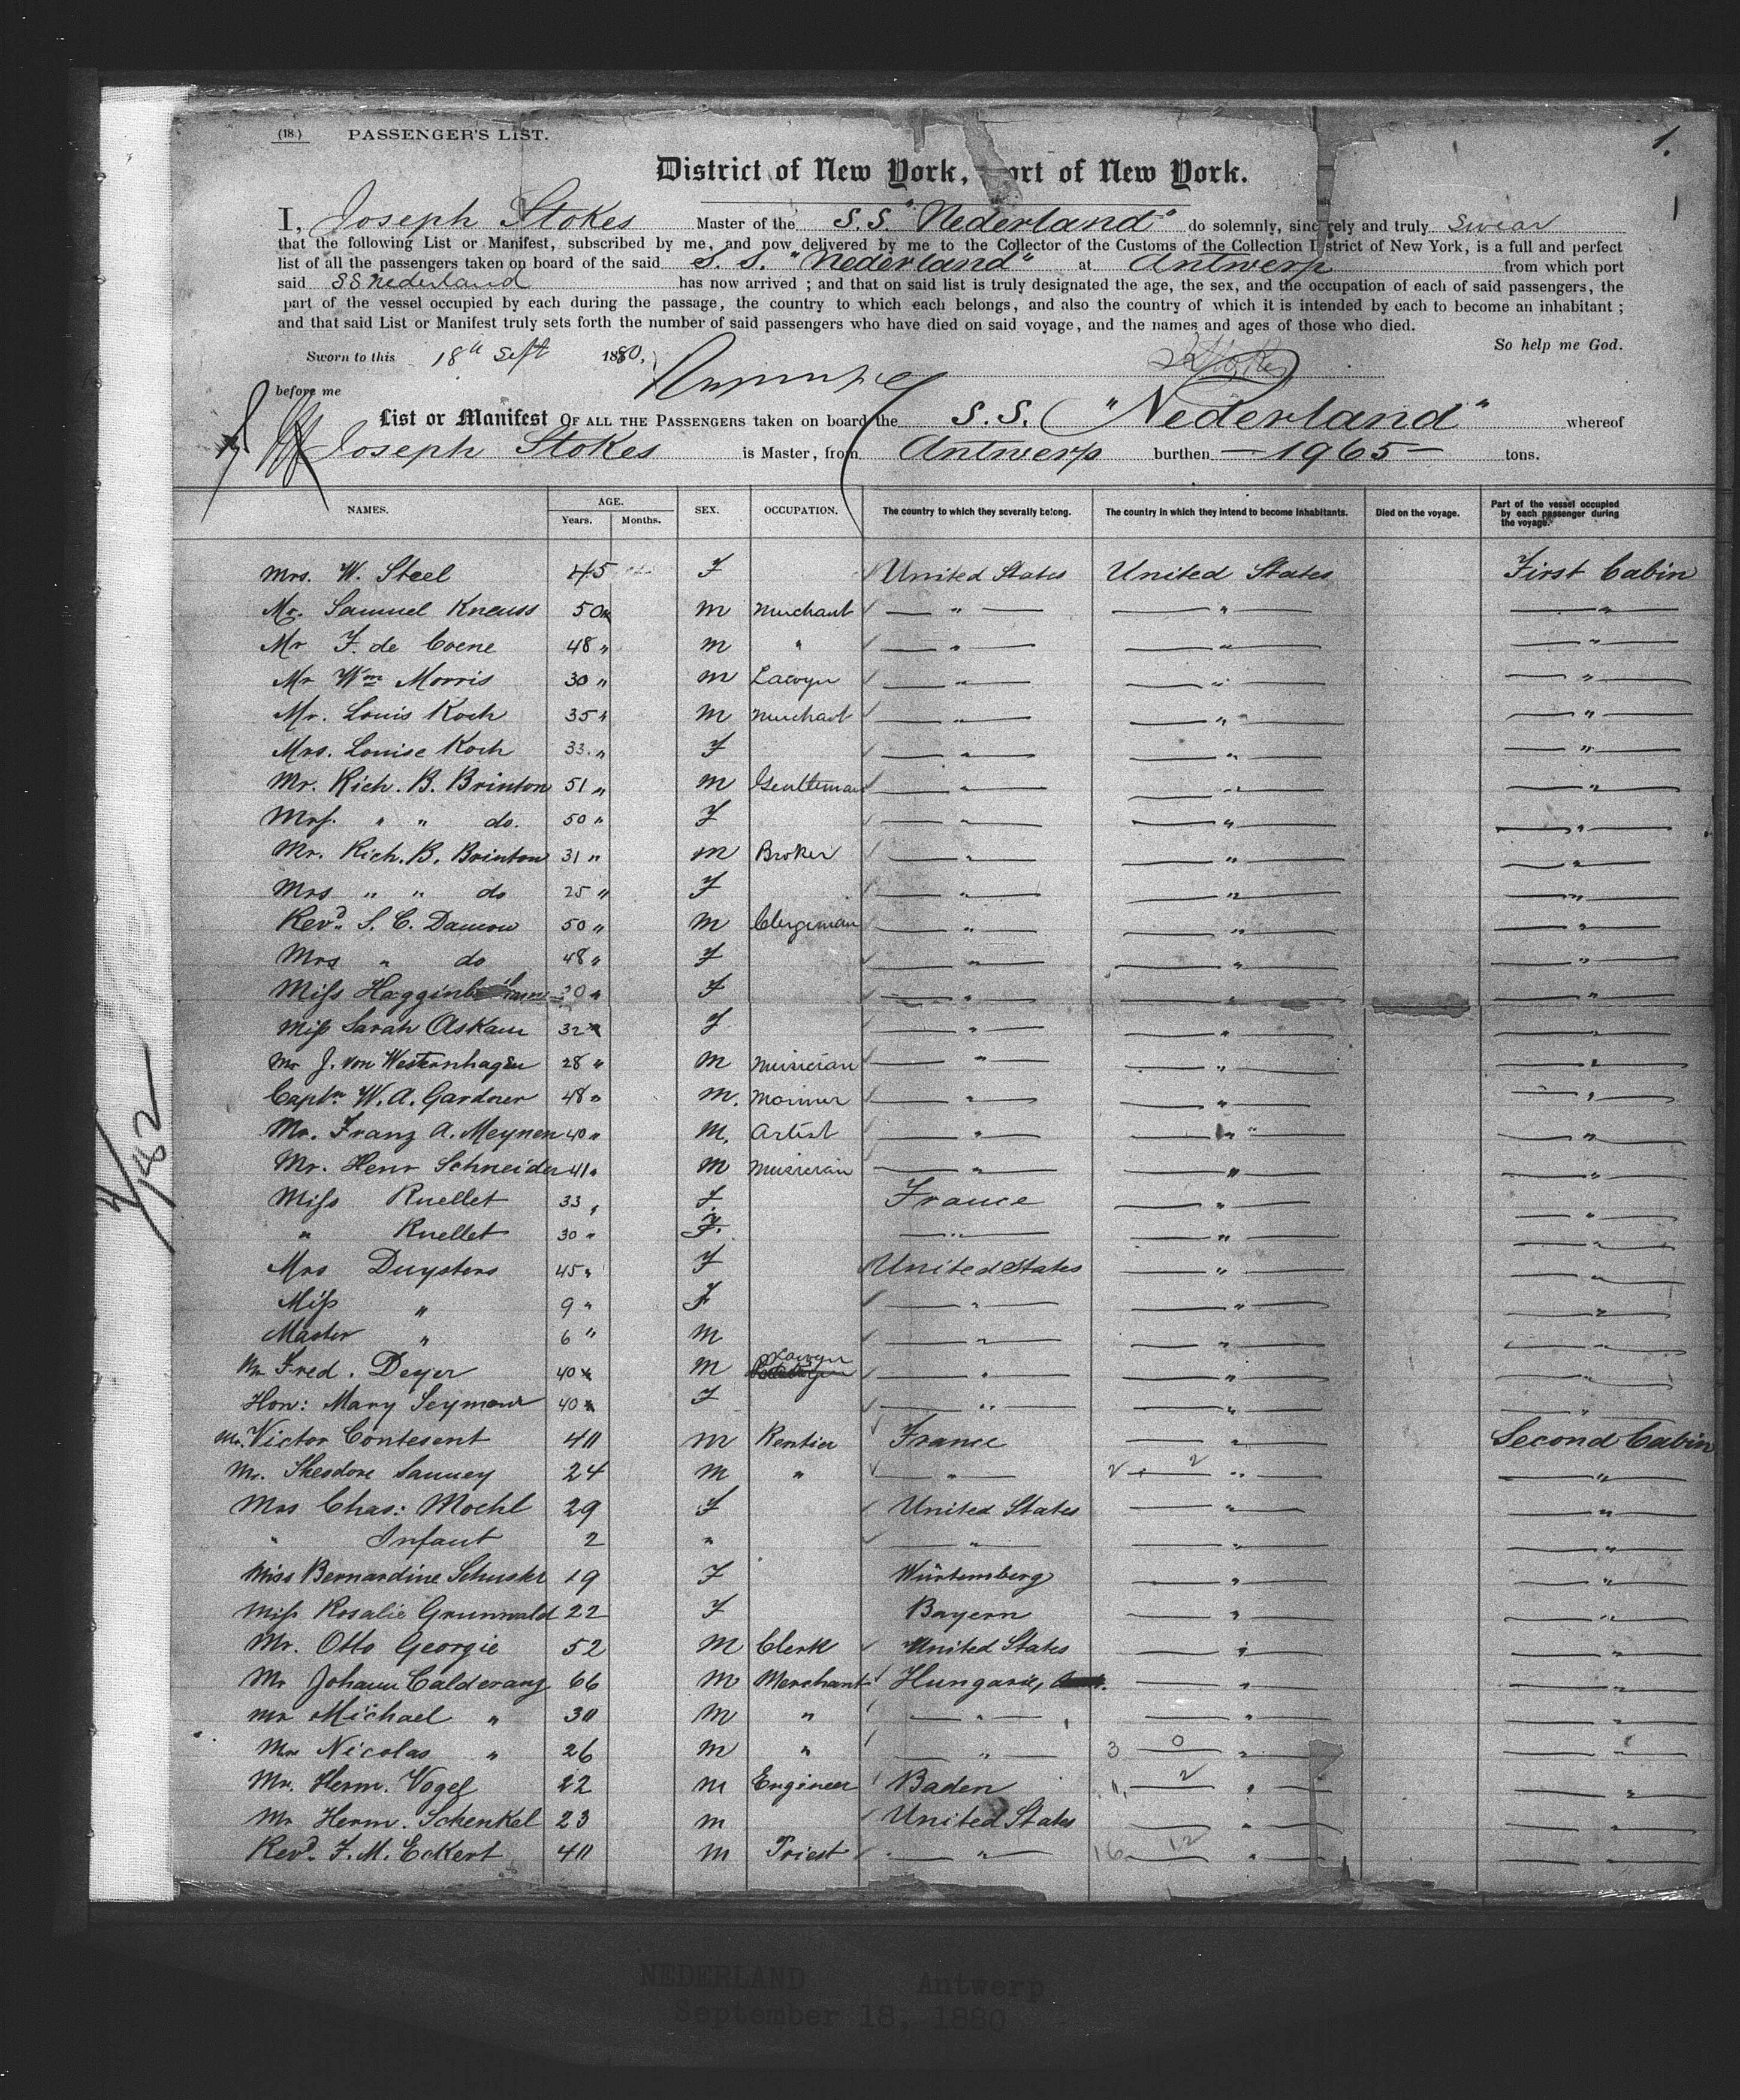 (18.) PASSENGER'S LIST. 1.
District of New York, Port of New York.
I, Joseph Stokes Master of the S.S. "Nederland" do solemnly, sincerely and truly swear
that the following List or Manifest, subscribed by me, and now delivered by me to the Collector of the Customs of the Collection District of New York, is a full and perfect
list of all the passengers taken on board of the said S. S. "Nederland" at Antwerp from which port
said SS Nederland has now arrived ; and that on said list is truly designated the age, the sex, and the occupation of each of said passengers, the
part of the vessel occupied by each during the passage, the country to which each belongs, and also the country of which it is intended by each to become an inhabitant ;
and that said List or Manifest truly sets forth the number of said passengers who have died on said voyage, and the names and ages of those who died.
So help me God.
Sworn to this 18th Sept 1880, J Stokes
before me
List or Manifest OF ALL THE PASSENGERS taken on board the S.S. "Nederland" whereof
Joseph Stokes is Master, from Antwerp burthen - 1965 - tons.
NAMES. AGE. Years. Months. SEX. OCCUPATION. The country to which they severally belong. The country in which they intend to become inhabitants. Died on the voyage. Part of the vessel occupied by each passenger during the voyage.
Mrs. W. Steel 45 F United States United States First Cabin
Mr. Samuel Knauss 50 " M Merchant " " "
Mr F. de Coene 48 " M " " " "
Mr Wm Morris 30 " M Lawyer " " "
Mr. Louis Koch 35 " M Merchant " " "
Mrs. Louise Koch 33 " F " " "
Mr. Rich. B. Brinton 51 " M Gentleman " " "
Mrs. " " do. 50 " F " " "
Mr. Rich. B. Brinton 31 " M Broker " " "
Mrs " " do 25 " F " " "
Revd. S. C. Damon 50 " M Clergiman " " "
Mrs " do 48 " F " " "
Miss " F " " "
Miss Sarah Askam 32 " F " " "
Mr J. von Westernhagen 28 " M Musician " " "
Captn. W. A. Gardner 48 " M. Mariner " " "
Mr. Franz A. Meynen 40 " M. Artist " " "
Mr. Henr Schneider 41 " M Musician " " "
Miss Ruellet 33 " F. France " "
" Ruellet 30 " F. " " "
Mrs Duysters 45 " F United States " "
Miss " 9 " F " " "
Master " 6 " M " " "
Mr Fred. Deyer 40 " M Lawyer " " "
Hon: Mary Seymour 40 " F " " "
Mr. Victor Contesent 40 M Rentier France " Second Cabin
Mr. Theodore Sanney 24 M " " " "
Mrs Chas: Moehl 29 F United States " "
" Infant 2 " " " "
Miss Bernardine Schuster 19 F Würtemberg " "
Miss Rosalie Grunwald 22 F Bayern " "
Mr. Otto Georgie 52 M Clerk United States " "
Mr Johann Calderany 66 M Merchant Hungarie, " "
Mr Michael " 30 M " " " "
Mr Nicolas " 26 M " " 3 0 " "
Mr. Herm. Vogel 22 M Engineer Baden 1, 2 " "
Mr Herm. Schenkel 23 M United States " "
Revd. F. M. Eckert 40 M Priest " 16 12 " "
NEDERLAND Antwerp
September 18, 1880